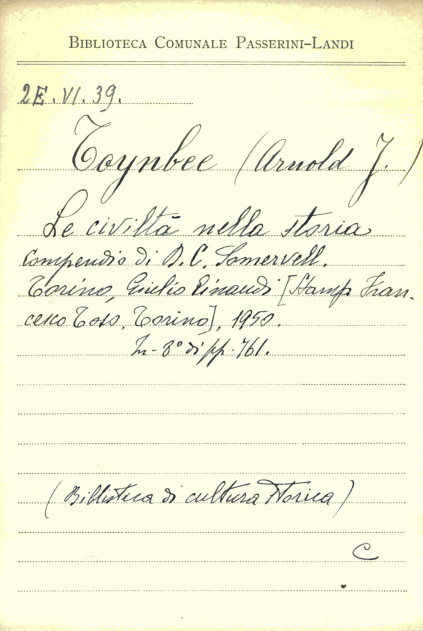 BIBLIOTECA COMUNALE PASSERINI-LANDI
2E.VI.39.
Toynbee (Arnold J.)
Le civiltà nella storia
Compendio di D. C. Somervell.
Torino, Giulio Einaudi [Stamp. Fran-
cesco Toso, Torino], 1950.
In-8° di pp. 761.
(Biblioteca di cultura storica)
C